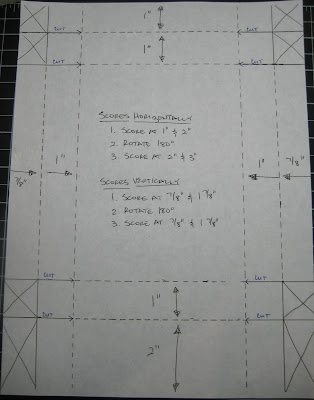 1"
CUT
CUT
1"
CUT
CUT
SCORES HORIZONTALLY
1. SCORE AT 1" & 2"
2. ROTATE 180°
3. SCORE AT 2" & 3"
7/8"
1"
1"
7/8"
SCORES VERTICALLY
1. SCORE AT 7/8" & 1 7/8"
2. ROTATE 180°
3. SCORE AT 7/8" & 1 7/8"
CUT
CUT
1"
CUT
CUT
2"